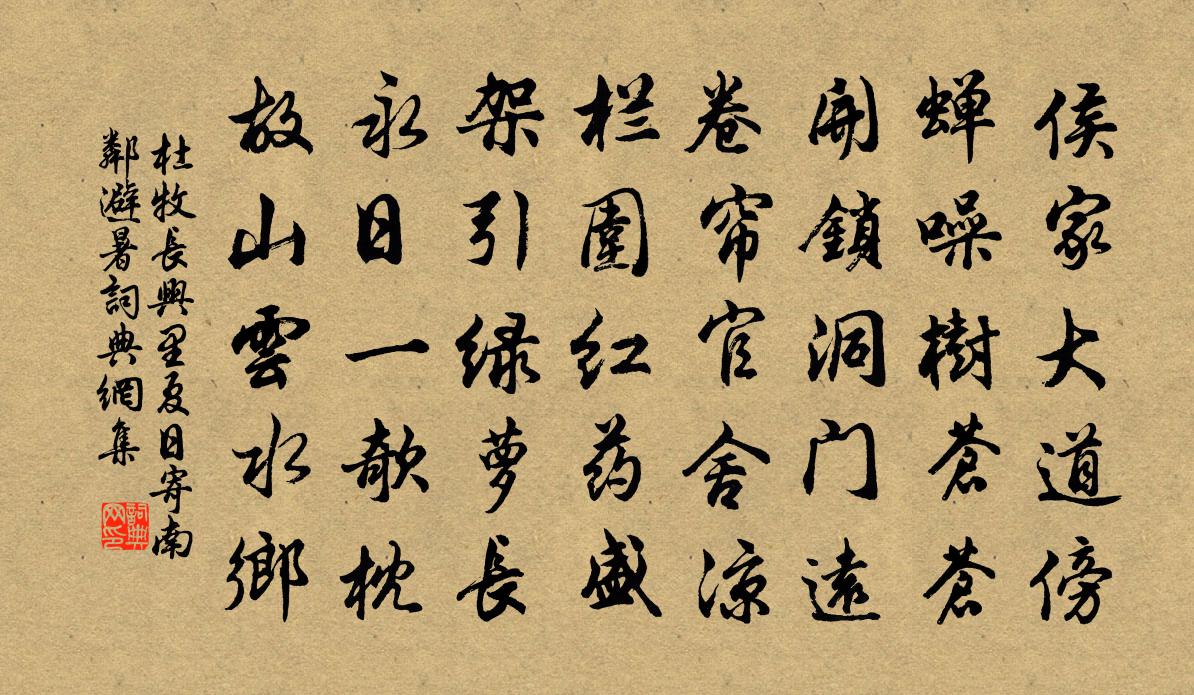 侯家大道傍
蝉噪樹蒼蒼
開鎖洞门遠
卷帘官舍凉
栏圍红药盛
架引绿萝長
永日一欹枕
故山雲水鄉
杜牧長興里夏日寄南
鄰避暑詞典網集
詞典网印